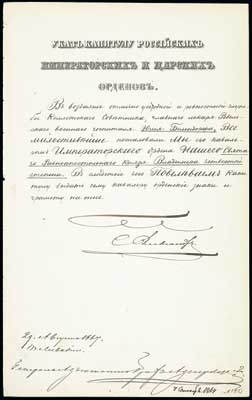 УКАЗЪ КАПИТУЛУ РОССІЙСКИХЪ
ИМПЕРАТОРСКИХЪ И ЦАРСКИХЪ
ОРДЕНОВЪ.
Въ воздаяніе отлично усердной и ревностной служ-
бы Коллежскаго Совѣтника, главнаго лекаря
военнаго госпиталя Все-
милостивѣйше пожаловали Мы его кавале-
ромъ Императорскаго ордена Нашего Свята-
го Равноапостольнаго Князя Владиміра четвертой
степени. Въ слѣдствіе чего Повелѣваемъ Капи-
тулу выдать сему кавалеру орденскіе знаки и
грамоту на оные.
Александръ
29. Августа 1867.